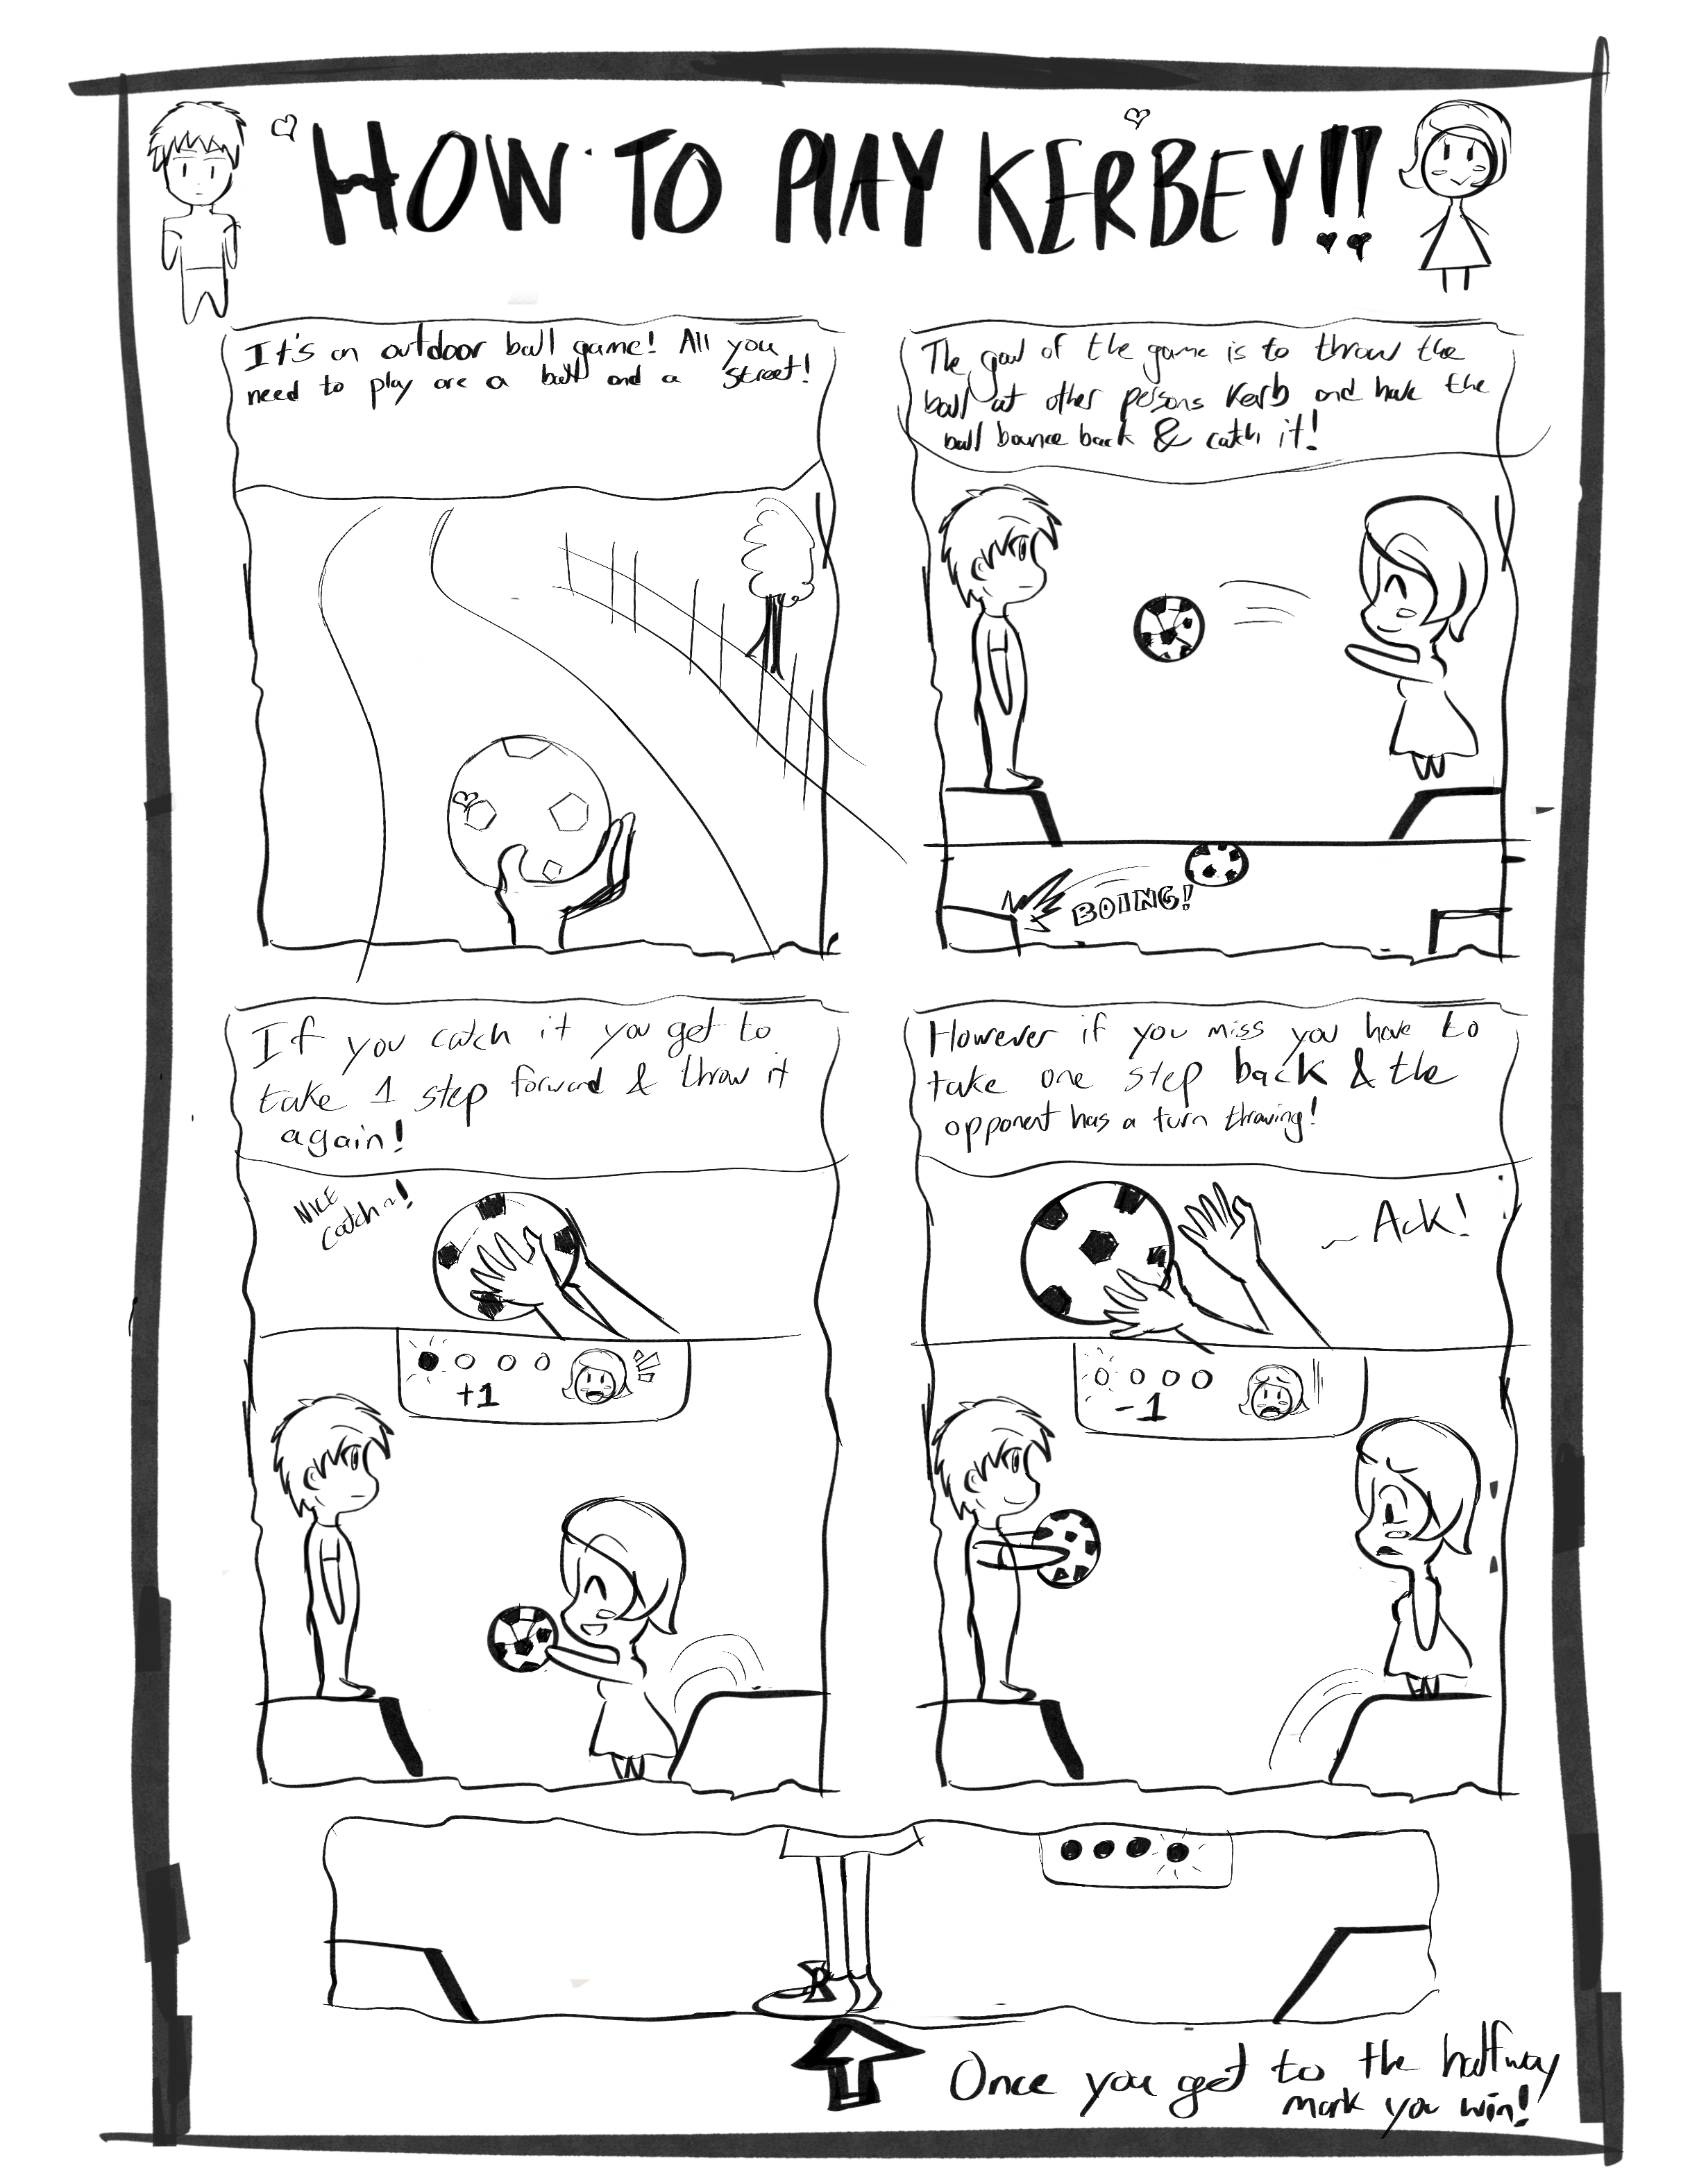 HOW TO PLAY KERBEY!!
It's an outdoor ball game! All you
need to play are a ball and a street!
The goal of the game is to throw the
ball at other persons kerb and have the
ball bounce back & catch it!
BOING!
If you catch it you get to
take 1 step forward & throw it
again!
NICE
catch~!
+1
However if you miss you have to
take one step back & the
opponent has a turn throwing!
~ Ack!
-1
Once you get to the halfway
mark you win!